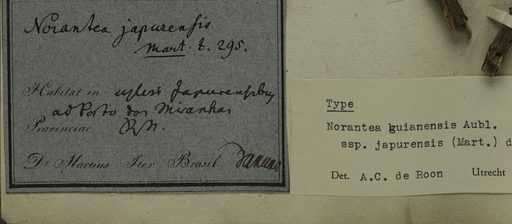 Norantea japurensis
Mart. t. 295.
Habitat in sylvis Japurensibus
ad Porto dos Miranhas
Provinciae R. N.
Dr. Martius Iter Brasil. Januar
Type
Norantea guianensis Aubl.
ssp. japurensis (Mart.) d
Det. A.C. de Roon Utrecht